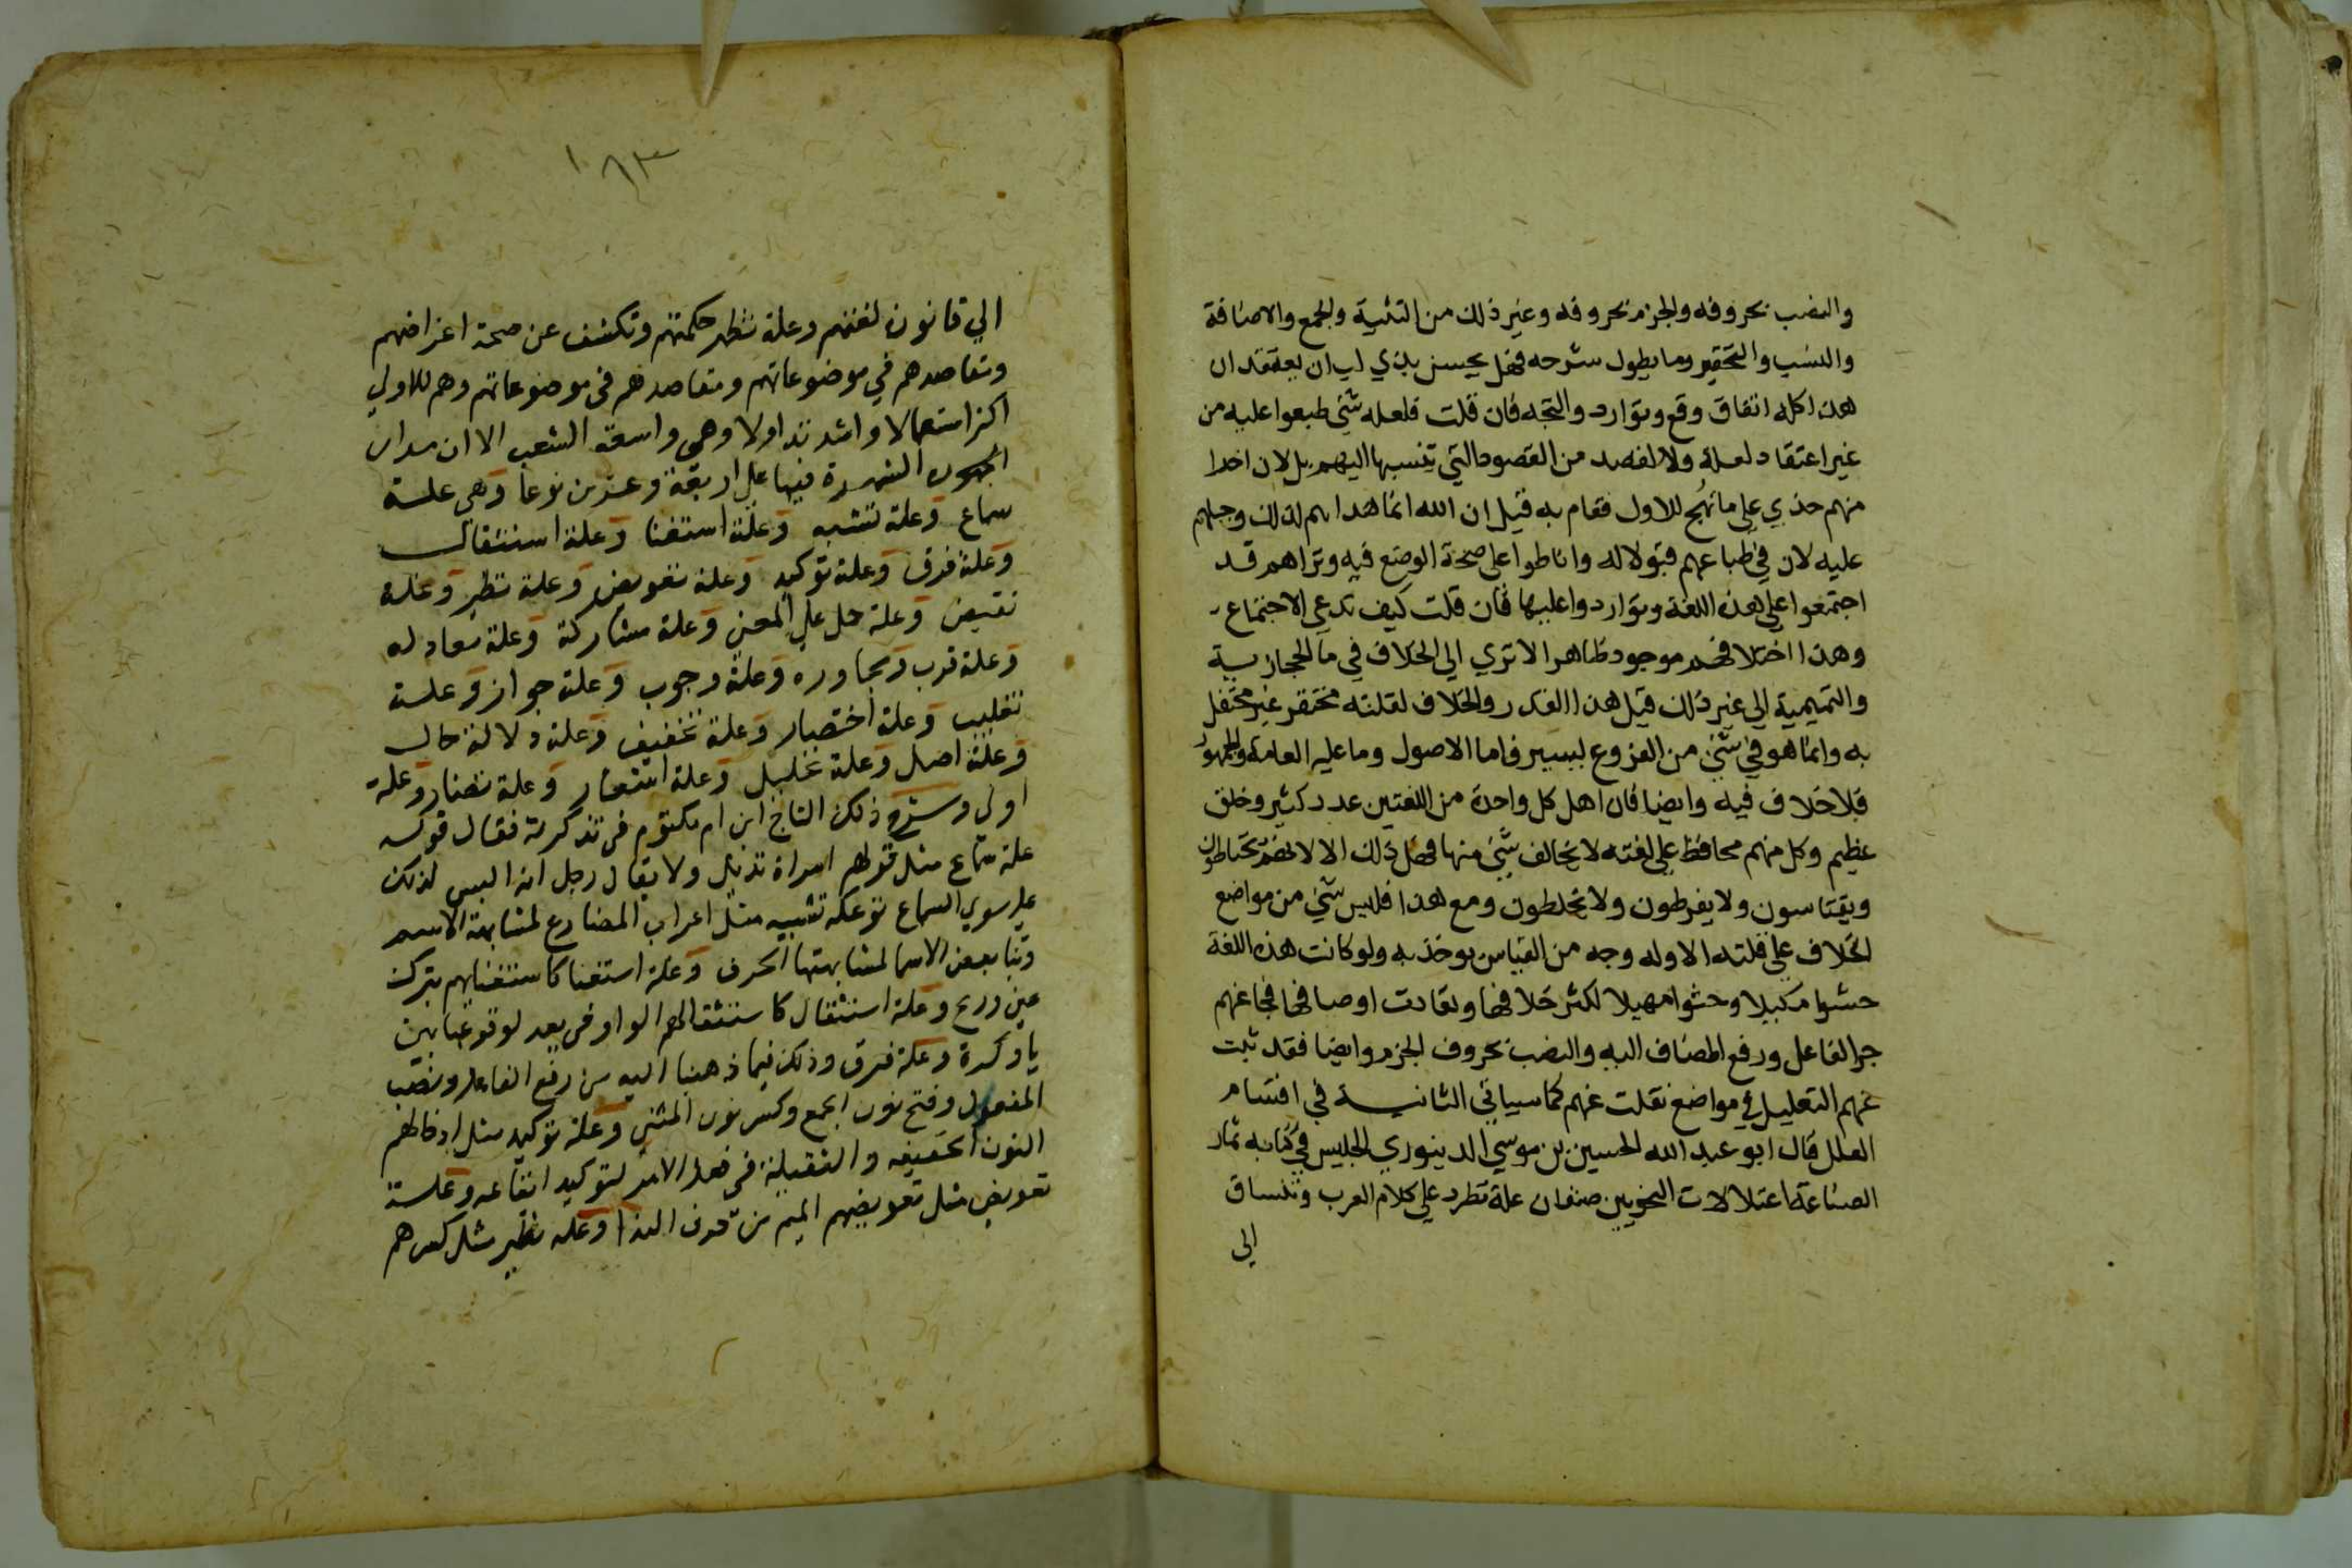 والنصب بحروفه والجزم بحروفه وغير ذلك من التثنية والجمع والاضافة
والنسب والتحقير وما يطول شرحه فهل يحسن بذي لب ان يعتقد ان
هذا كله اتفاق وقع وتوارد واتجه فان قلت فلعله شي طبعوا عليه من
غير اعتقاد لعلة ولا لقصد من القصود التي تنسبها اليهم بل لان اخرا
منهم حذي علي ما نهج للاول فقام به قيل ان الله انما هداهم لذلك وجبلهم
عليه لان في طباعهم قبولا له واناطوا علي صحة الوضع فيه وتراهم قد
اجتمعوا علي هذه اللغة وتواردوا عليها فان قلت كيف تدعي الاجتماع
وهذا اختلافهم موجود ظاهرا الا تري الي الخلاف في ما الحجازية
والتميمية الي غير ذلك قيل هذا القدر والخلاف لقلته محتقر غير محتفل
به وانما هو في شي من الفروع ليسير فاما الاصول وما عليه العامة والجمهور
فلا خلاف فيه وايضا فان اهل كل واحدة من اللغتين عدد كثير وخلق
عظيم وكل منهم محافظ علي لغته لا يخالف شي منها فهل ذلك الا لانهم يحتاطون
ويقتاسون ولا يفرطون ولا يخلطون ومع هذا فليس شي من مواضع
الخلاف علي قلته الا وله وجه من القياس يوخذ به ولو كانت هذه اللغة
حشوا مكيلا وحثوا مهيلا لكثر خلافها وتعادت اوصافها فجا عنهم
جر الفاعل ورفع المضاف اليه والنصب بحروف الجزم وايضا فقد ثبت
عنهم التعليل في مواضع نقلت عنهم كما سياتي الثانية في اقسام
العلل قال ابو عبد الله الحسين بن موسي الدينوري الجليس في كتابه ثمار
الصناعة اعتلالات النحويين صنفان علة تطرد علي كلام العرب وتنساق
الي
١٨٣
الي قانون لغتهم وعلة تظهر حكمتهم وتكشف عن صحة اغراضهم
ومقاصدهم في موضوعاتهم ومقاصدهم في موضوعاتهم وهم للاولي
اكثر استعمالا واشد تداولا وهي واسعة الشعب الا ان مدار
الشهرة فيها علي اربعة وعشرين نوعا وهي علة
سماع وعلة تشبيه وعلة استغنا وعلة استثقال
وعلة فرق وعلة توكيد وعلة تعويض وعلة نظير وعلة
نقيض وعلة حمل علي المعني وعلة مشاركة وعلة معادله
وعلة قرب ومجاوره وعلة وجوب وعلة جواز وعلة
تغليب وعلة اختصار وعلة تخفيف وعلة دلالة حال
وعلة اصل وعلة تحليل وعلة اشعار وعلة تضاد وعلة
اولي وشرح ذلك التاج ابن ام مكتوم في تذكرته فقال قوله
علة سماع مثل قولهم امراة ثديا ولا يقال رجل اثدا ليس لذلك
علة سوي السماع وعلة تشبيه مثل اعراب المضارع لمشابهة الاسم
وبنا بعض الاسما لمشابهتها الحرف وعلة استغنا كاستغنايهم بترك
عن ودع وعلة استثقال كاستثقالهم الواو في يعد لوقوعها بين
يا وكسرة وعلة فرق وذلك فيما ذهبنا اليه من رفع الفاعل ونصب
المفعول وفتح نون الجمع وكسر نون المثني وعلة توكيد مثل ادخالهم
النون الخفيفه والثقيلة في فعل الامر لتوكيد ايقاعه وعلة
تعويض مثل تعويضهم الميم من حرف الندا وعلة نظير مثل كسرهم